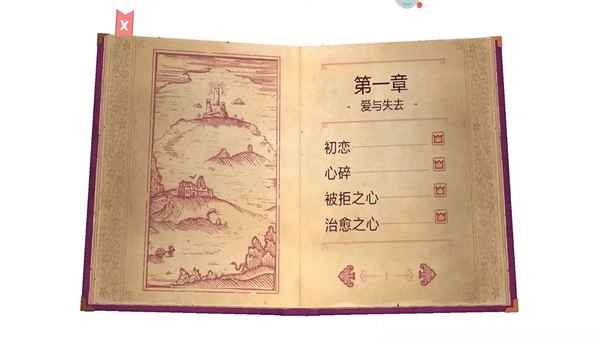 X
第一章
- 爱与失去 -
初恋
心碎
被拒之心
治愈之心